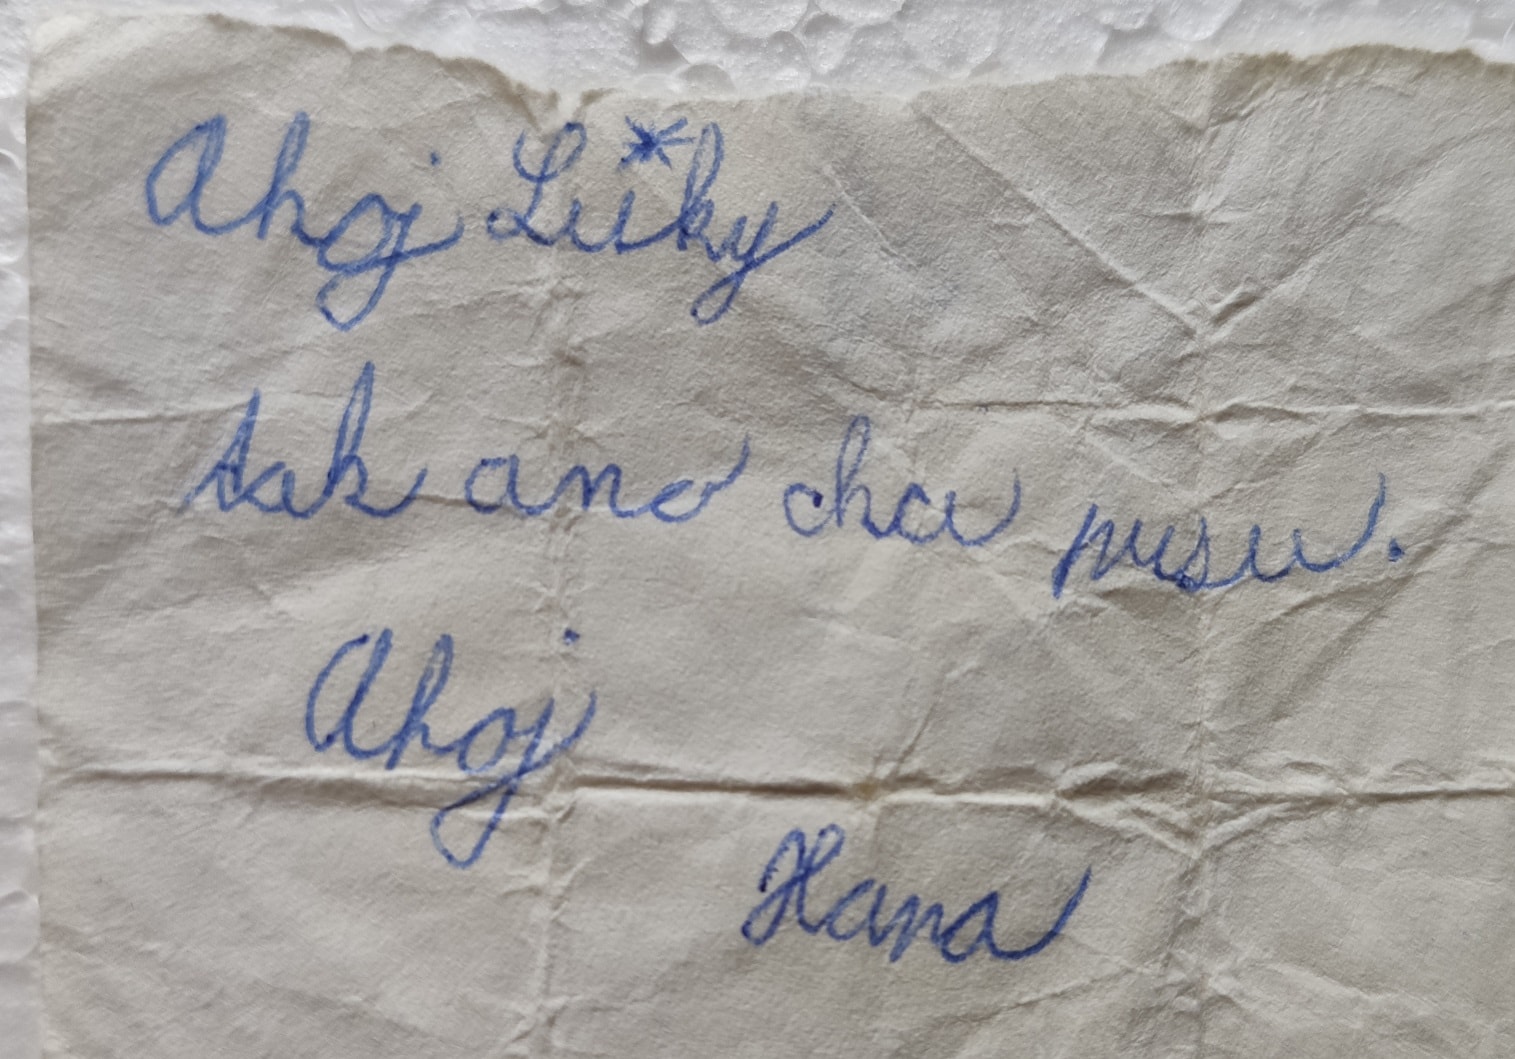 Ahoj Liiky
tak ano cha pusu.
Ahoj
Hana